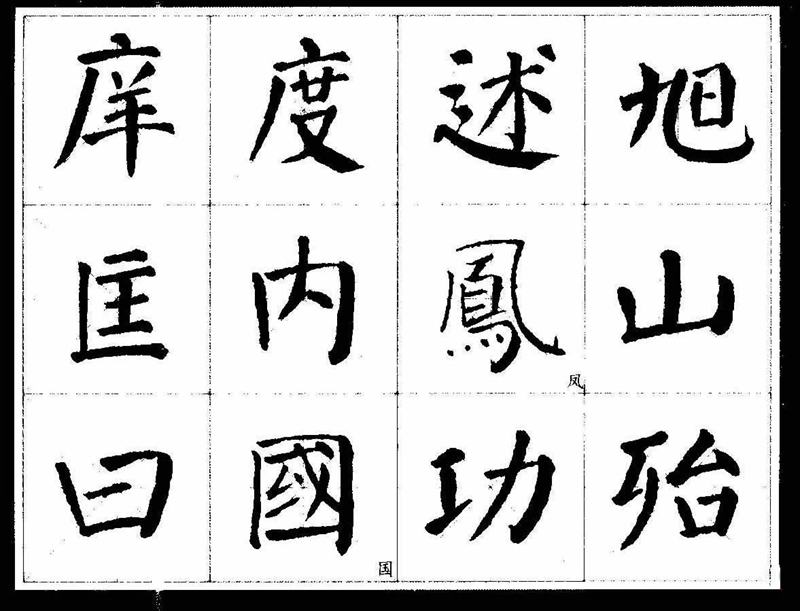 庠 度 述 旭
匡 内 鳳 山
凤
曰 國 功 殆
国